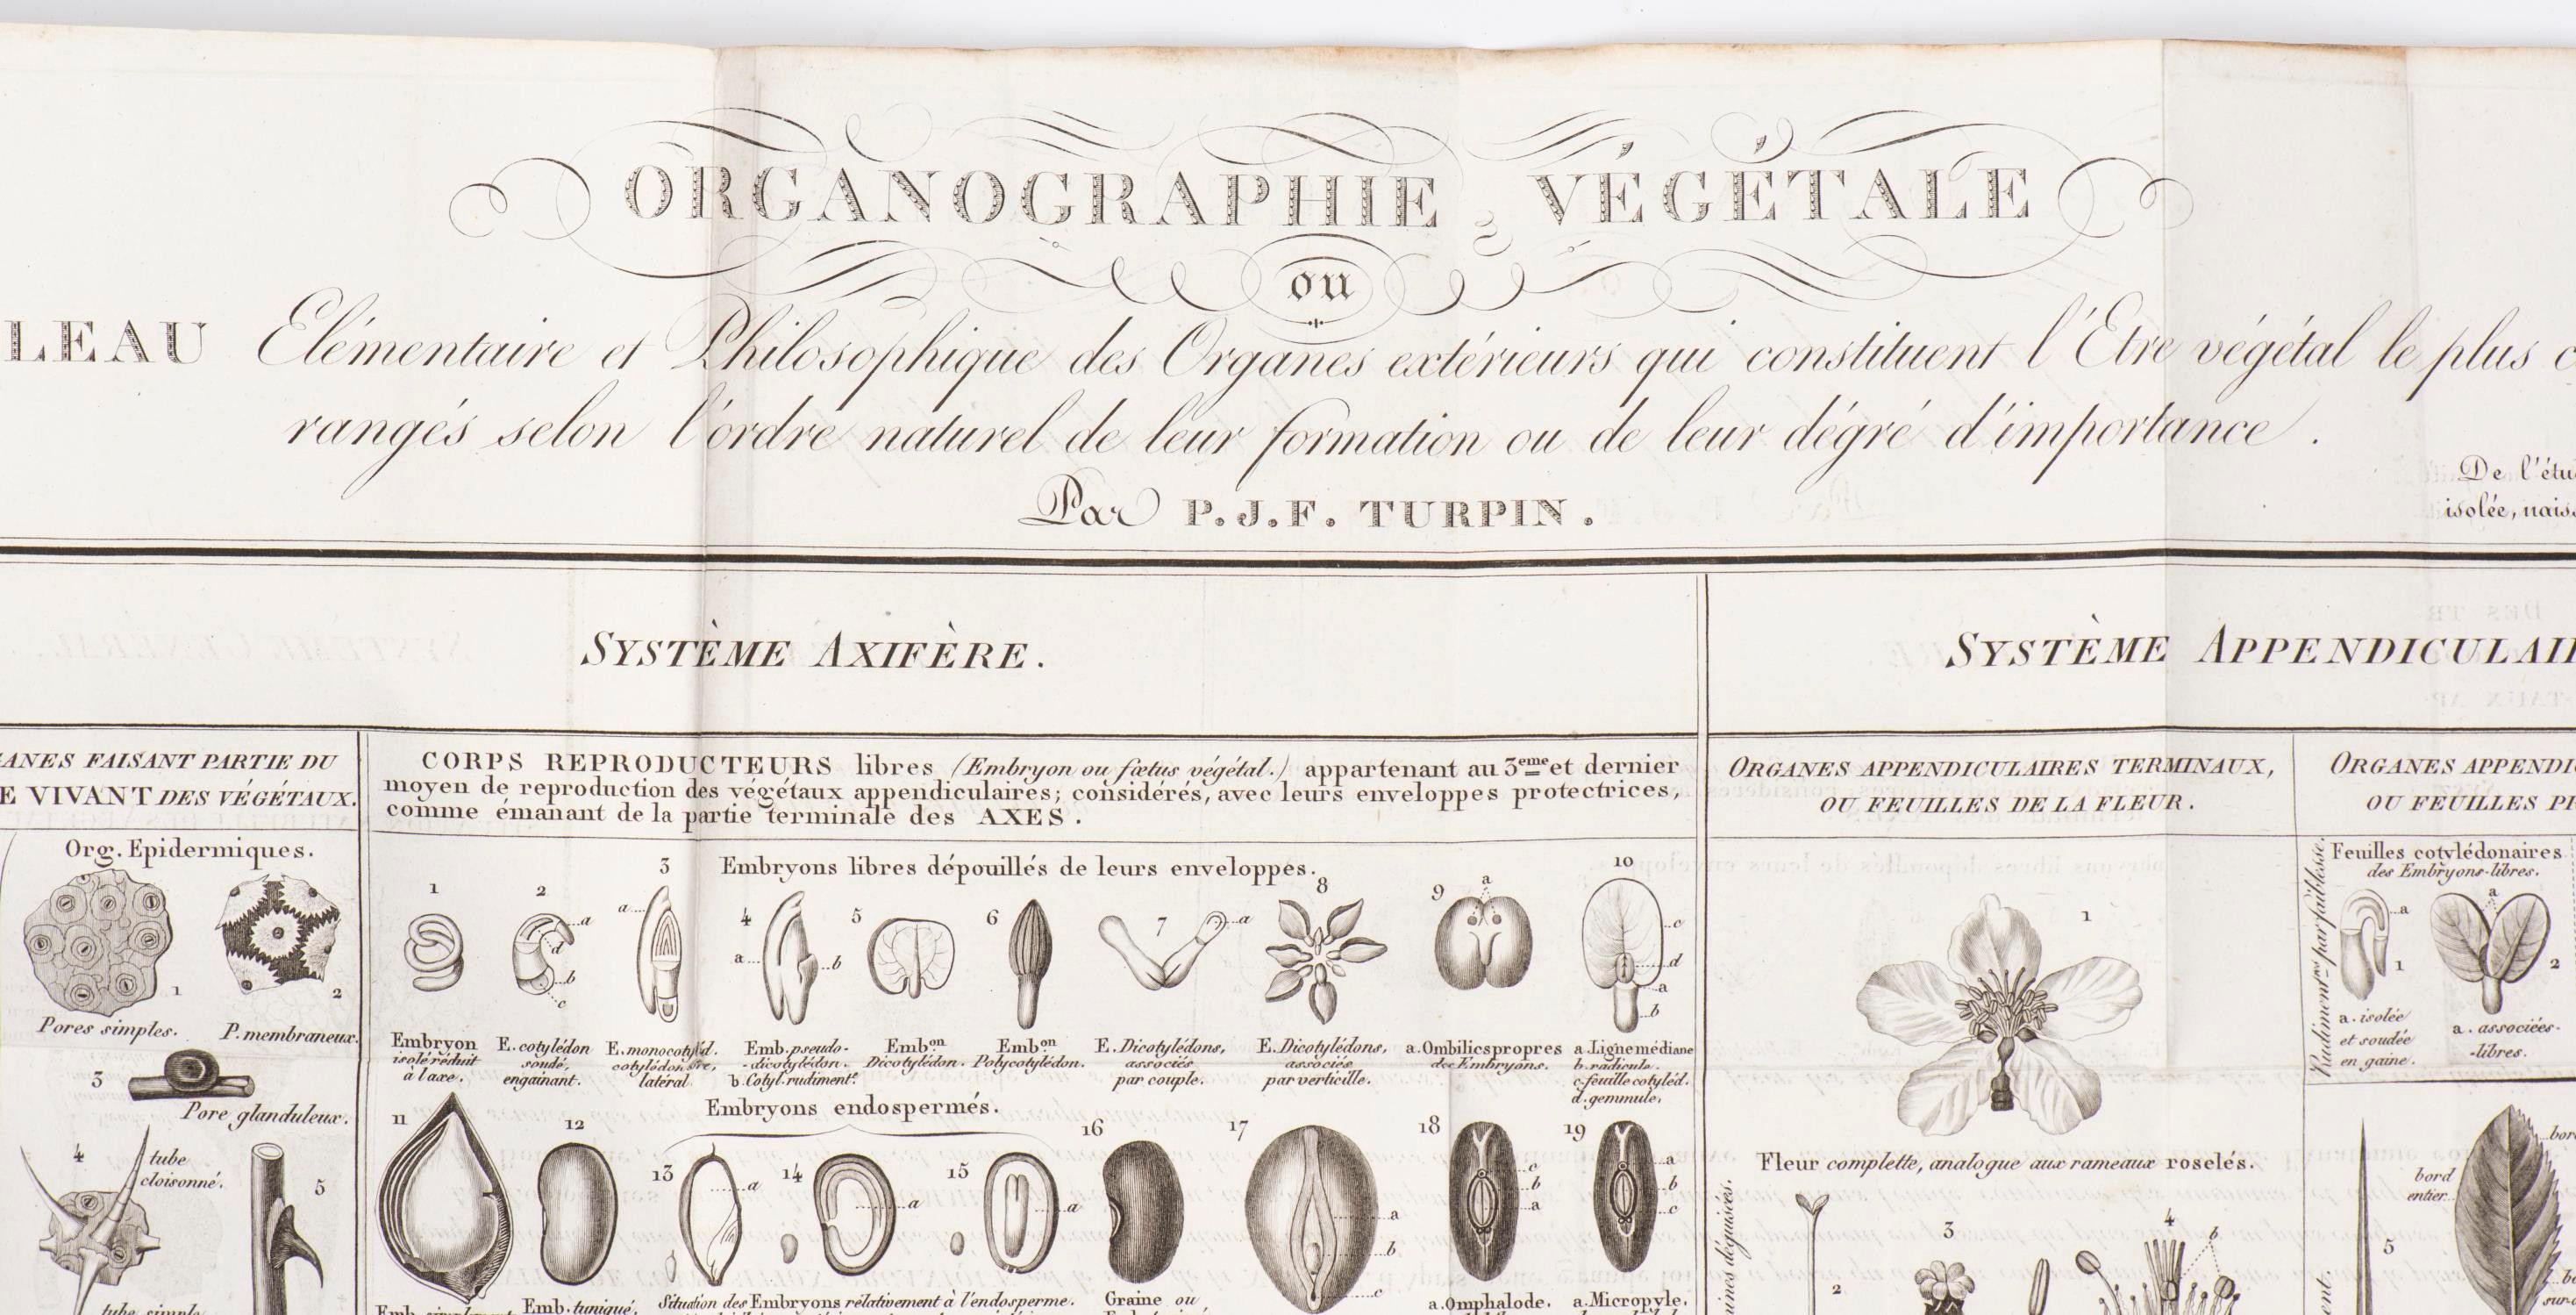 ORGANOGRAPHIE VÉGÉTALE
ou
LEAU Elémentaire et Philosophique des Organes extérieurs qui constituent l'Etre végétal le plus c
rangés selon l'ordre naturel de leur formation ou de leur dégré d'importance.
Par P. J. F. TURPIN.
De l'étu
isolée, nais
SYSTÈME AXIFÈRE.
SYSTÈME APPENDICULAI
ANES FAISANT PARTIE DU
E VIVANT DES VÉGÉTAUX.
CORPS REPRODUCTEURS libres (Embryon ou fœtus végétal.) appartenant au 3eme et dernier
moyen de reproduction des végétaux appendiculaires; considérés, avec leurs enveloppes protectrices,
comme émanant de la partie terminale des AXES.
ORGANES APPENDICULAIRES TERMINAUX,
OU FEUILLES DE LA FLEUR.
ORGANES APPENDI
OU FEUILLES P
Org. Epidermiques.
1
2
Pores simples.
P. membraneux.
3
Pore glanduleux.
4
tube
cloisonné.
5
tube simple
Embryons libres dépouillés de leurs enveloppes.
1
2
a
d
b
c
3
a
4
a
b
5
6
7
a
8
9
a
10
c
d
a
b
Embryon
isolé réduit
à l'axe.
E. cotylédon
soudé,
engainant.
E. monocotyléd.
latéral
Emb. pseudo-
-dicotylédon.
b. Cotyl. rudimentre
Embon
Dicotylédon.
Embon
Polycotylédon.
E. Dicotylédons,
associés
par couple.
E. Dicotylédons,
associés
par verticille.
a. Ombilics propres
des Embryons.
a. Ligne médiane
b. radicule.
c. feuille cotyléd.
d. gemmule.
Embryons endospermés.
11
12
13
a
14
a
15
a
16
17
a
b
c
18
c
b
a
19
a
b
c
Emb. tuniqué.
Situation des Embryons rélativement à l'endosperme.
Graine ou
a. Omphalode.
a. Micropyle.
1
Fleur complette, analogue aux rameaux roselés.
2
3
4
b
Feuilles cotylédonaires
des Embryons-libres.
a
1
a
2
a. isolée
et soudée
en gaine.
a. associées-
-libres.
5
bord
entier.
bor